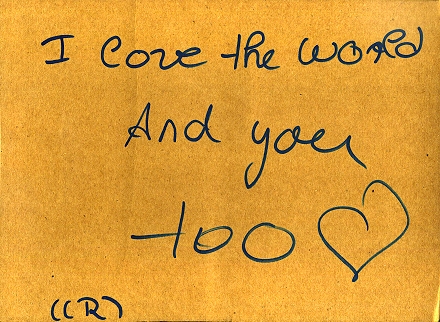 I love the world
And you
too
((R)